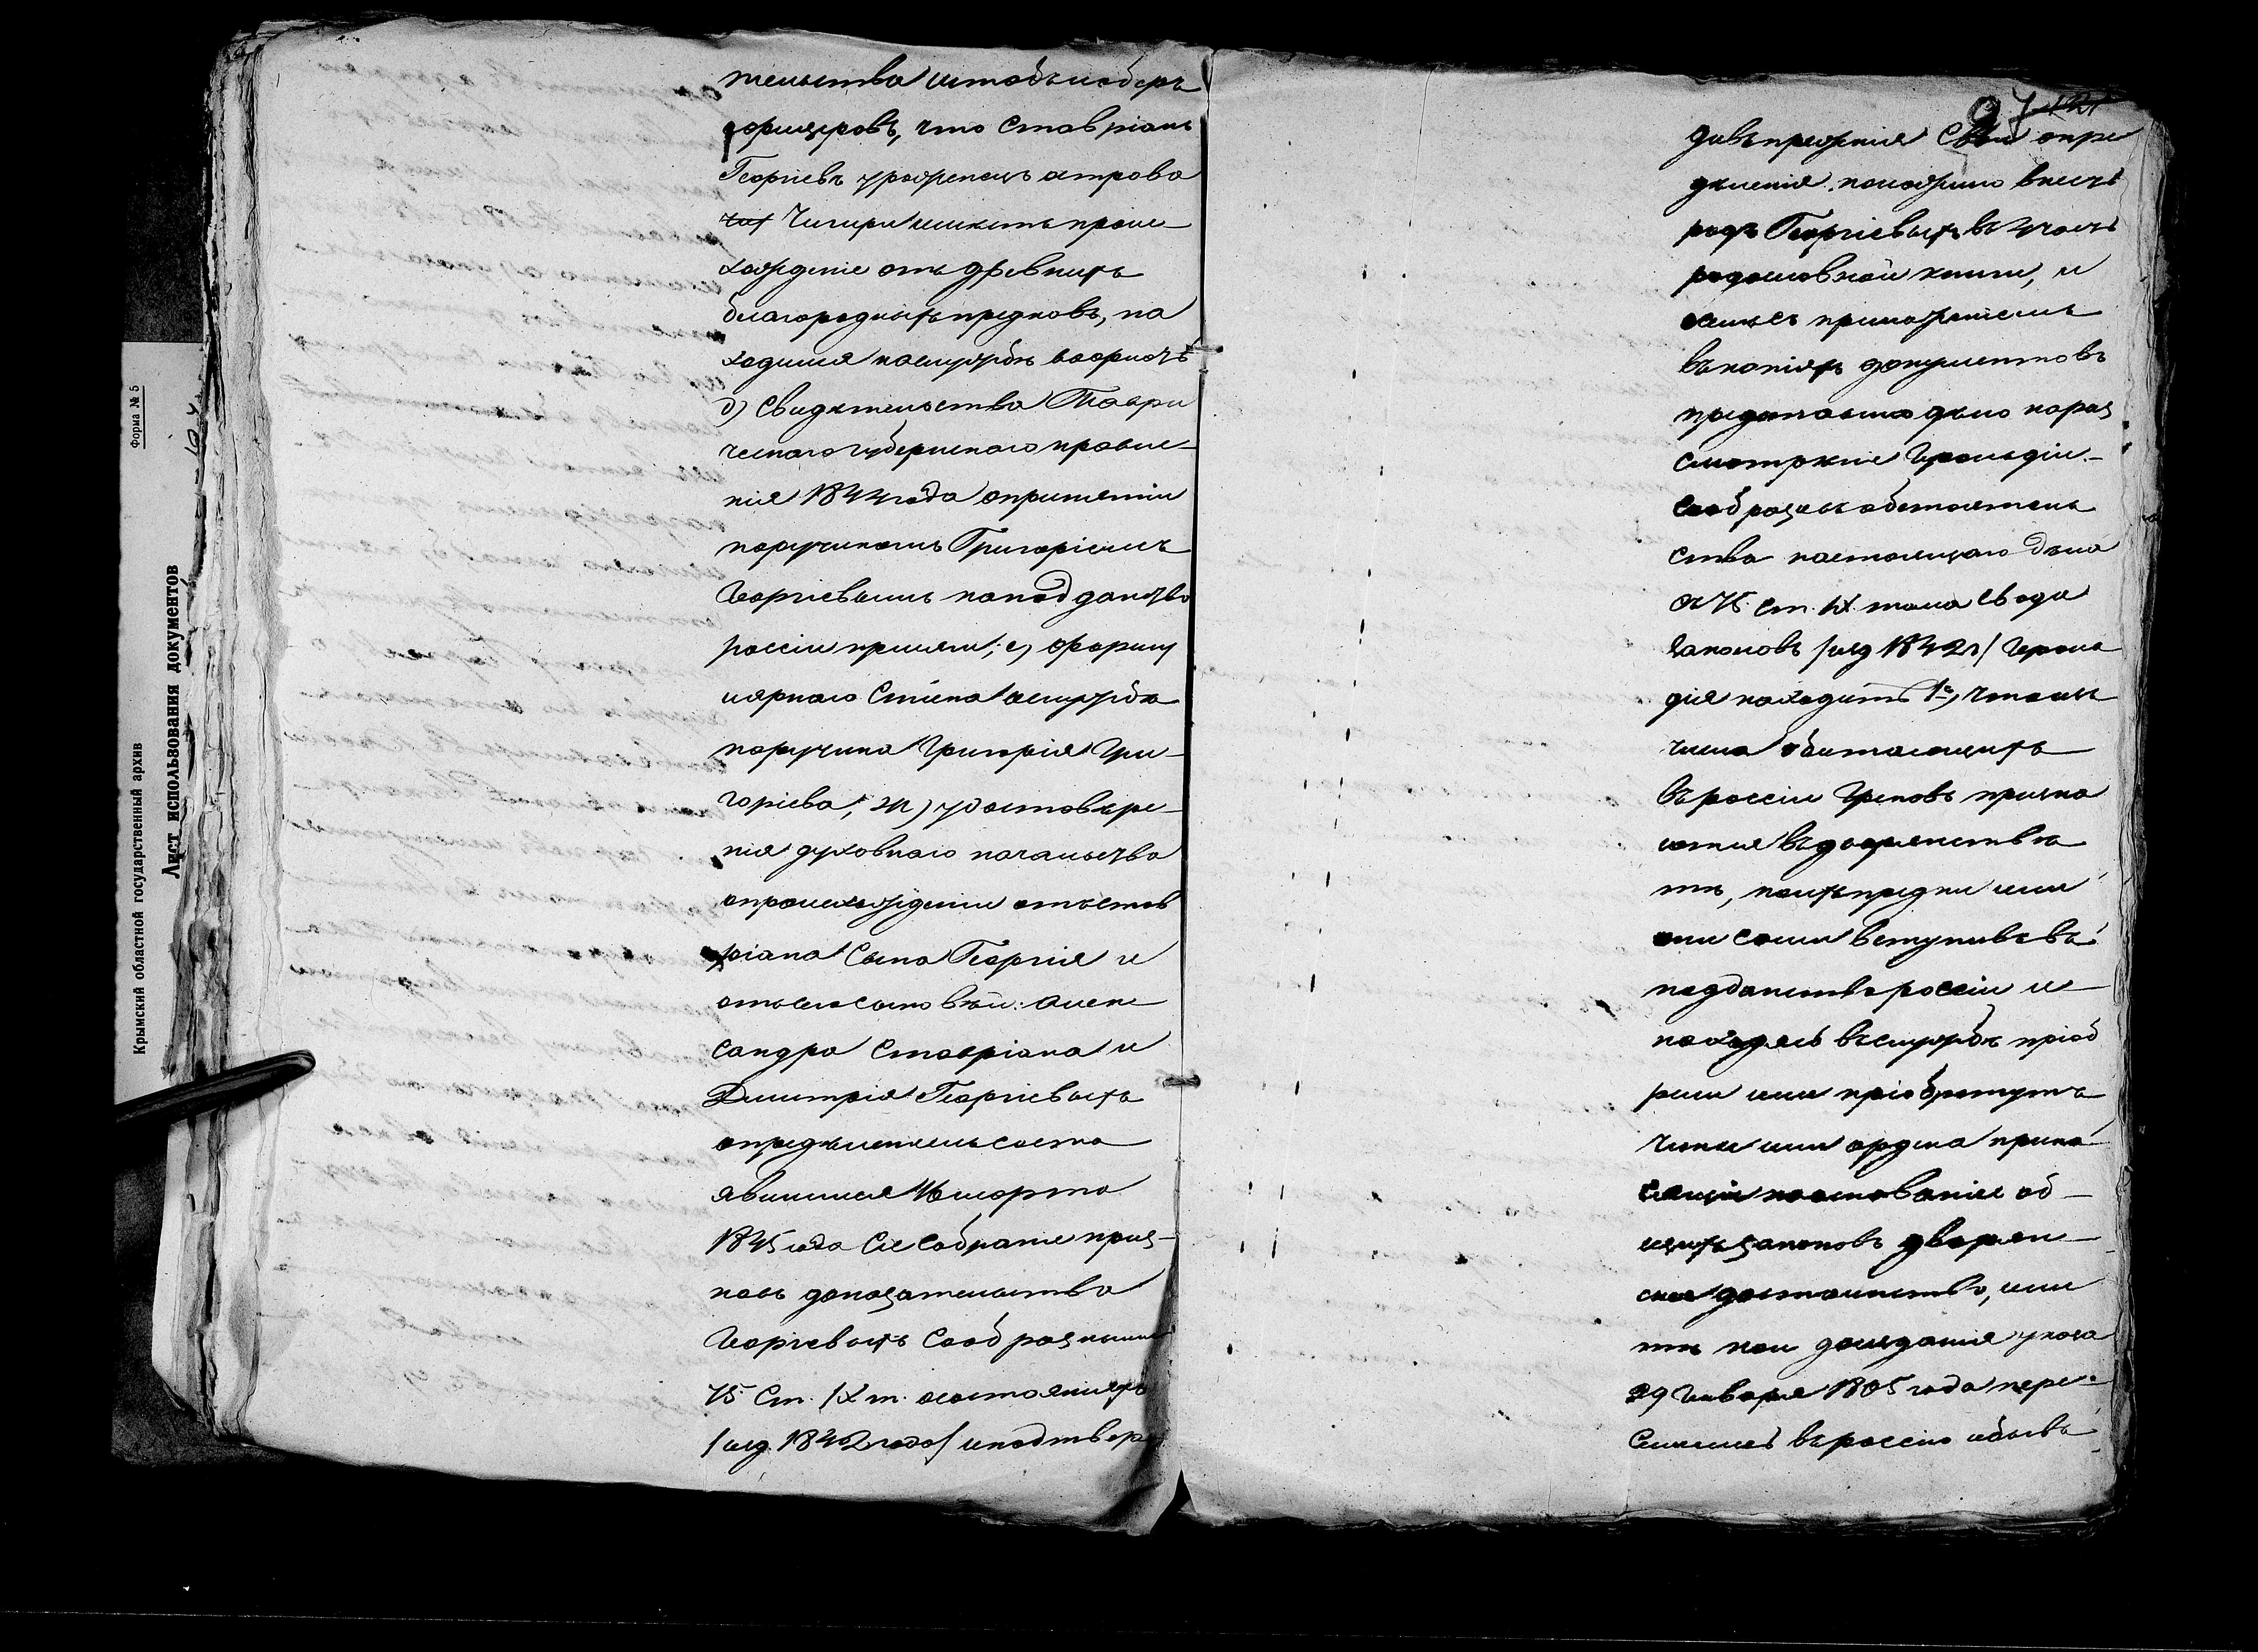 Крымский областной государственный архив
Форма № 5
Лист использования документов
тельства штабъ и оберъ
офицеровъ, что Ставріанъ
Георгіевъ уроженецъ острова
Чигири имѣетъ проис-
хожденіе отъ древнихъ
благородныхъ предковъ, на
ходился на службѣ во флотѣ
д) Свидѣтельства Таври
ческаго губернскаго правле-
нія 1844 года о принятіи
поручикомъ Григоріемъ
Георгіевымъ на подданство
россіи присяги; е) Форму
лярнаго Списка о службѣ
поручика Григорія Гри-
горіева; ж) удостовѣре-
нія духовнаго начальства
о происхожденіи отъ Став
ріана Сына Георгія и
отъ сего сыновей: Алек
сандра Ставріана и
Дмитрія Георгіевыхъ
опредѣленіемъ состо
явшимся 16 марта
1845 года Сіе Собраніе приз-
навъ доказательства
Георгіевыхъ Сообразными
75 Ст. IX т. о состояніяхъ
/изд. 1842 года/ и подтвер
97
дивъ прежнія Свои опре
дѣленія положило внесть
родъ Георгіевыхъ въ часть
родословной книги, и
съ приложеніемъ
въ копіяхъ документовъ
представило дѣло на раз
смотрѣніе Герольдіи.-
Сообразивъ обстоятель
ства настоящаго дѣла
съ 75 ст. IX тома Свода
законовъ /изд 1842 г/ Героль
дія находитъ 1е, что изъ
числа обитающихъ
въ россіи Грековъ призна
ются въ дворянствѣ
тѣ, коихъ предки или
они сами вступивъ въ
подданство россіи и
находясь въ службѣ пріоб
рѣли или пріобрѣтутъ
чины или ордена прино
сящіе на основаніи об-
щихъ законовъ дворян-
ское достоинство, или
тѣ кои до изданія указа
29 Января 1805 года пере-
селились въ россію и объявъ